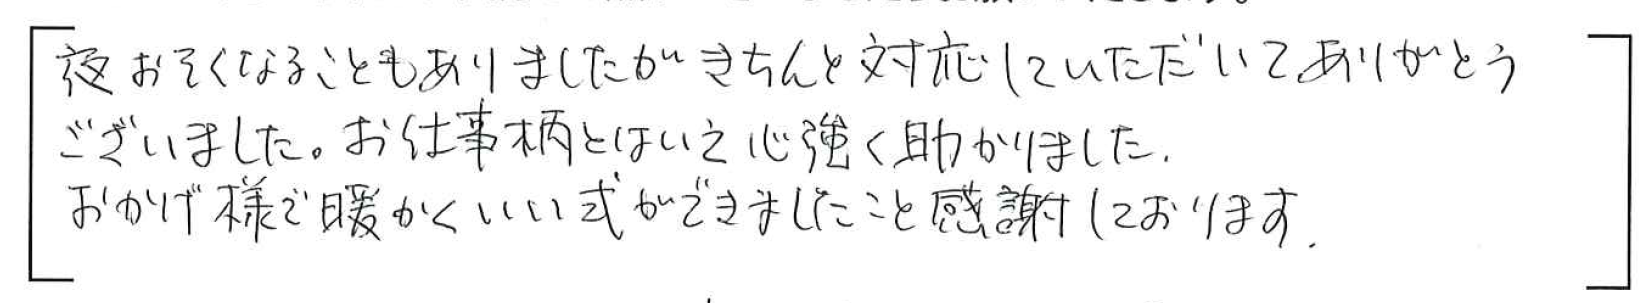 夜おそくなることもありましたがきちんと対応していただいてありがとう
ございました。お仕事柄とはいえ心強く助かりました.
おかげ様で暖かくいい式ができましたこと感謝しております.